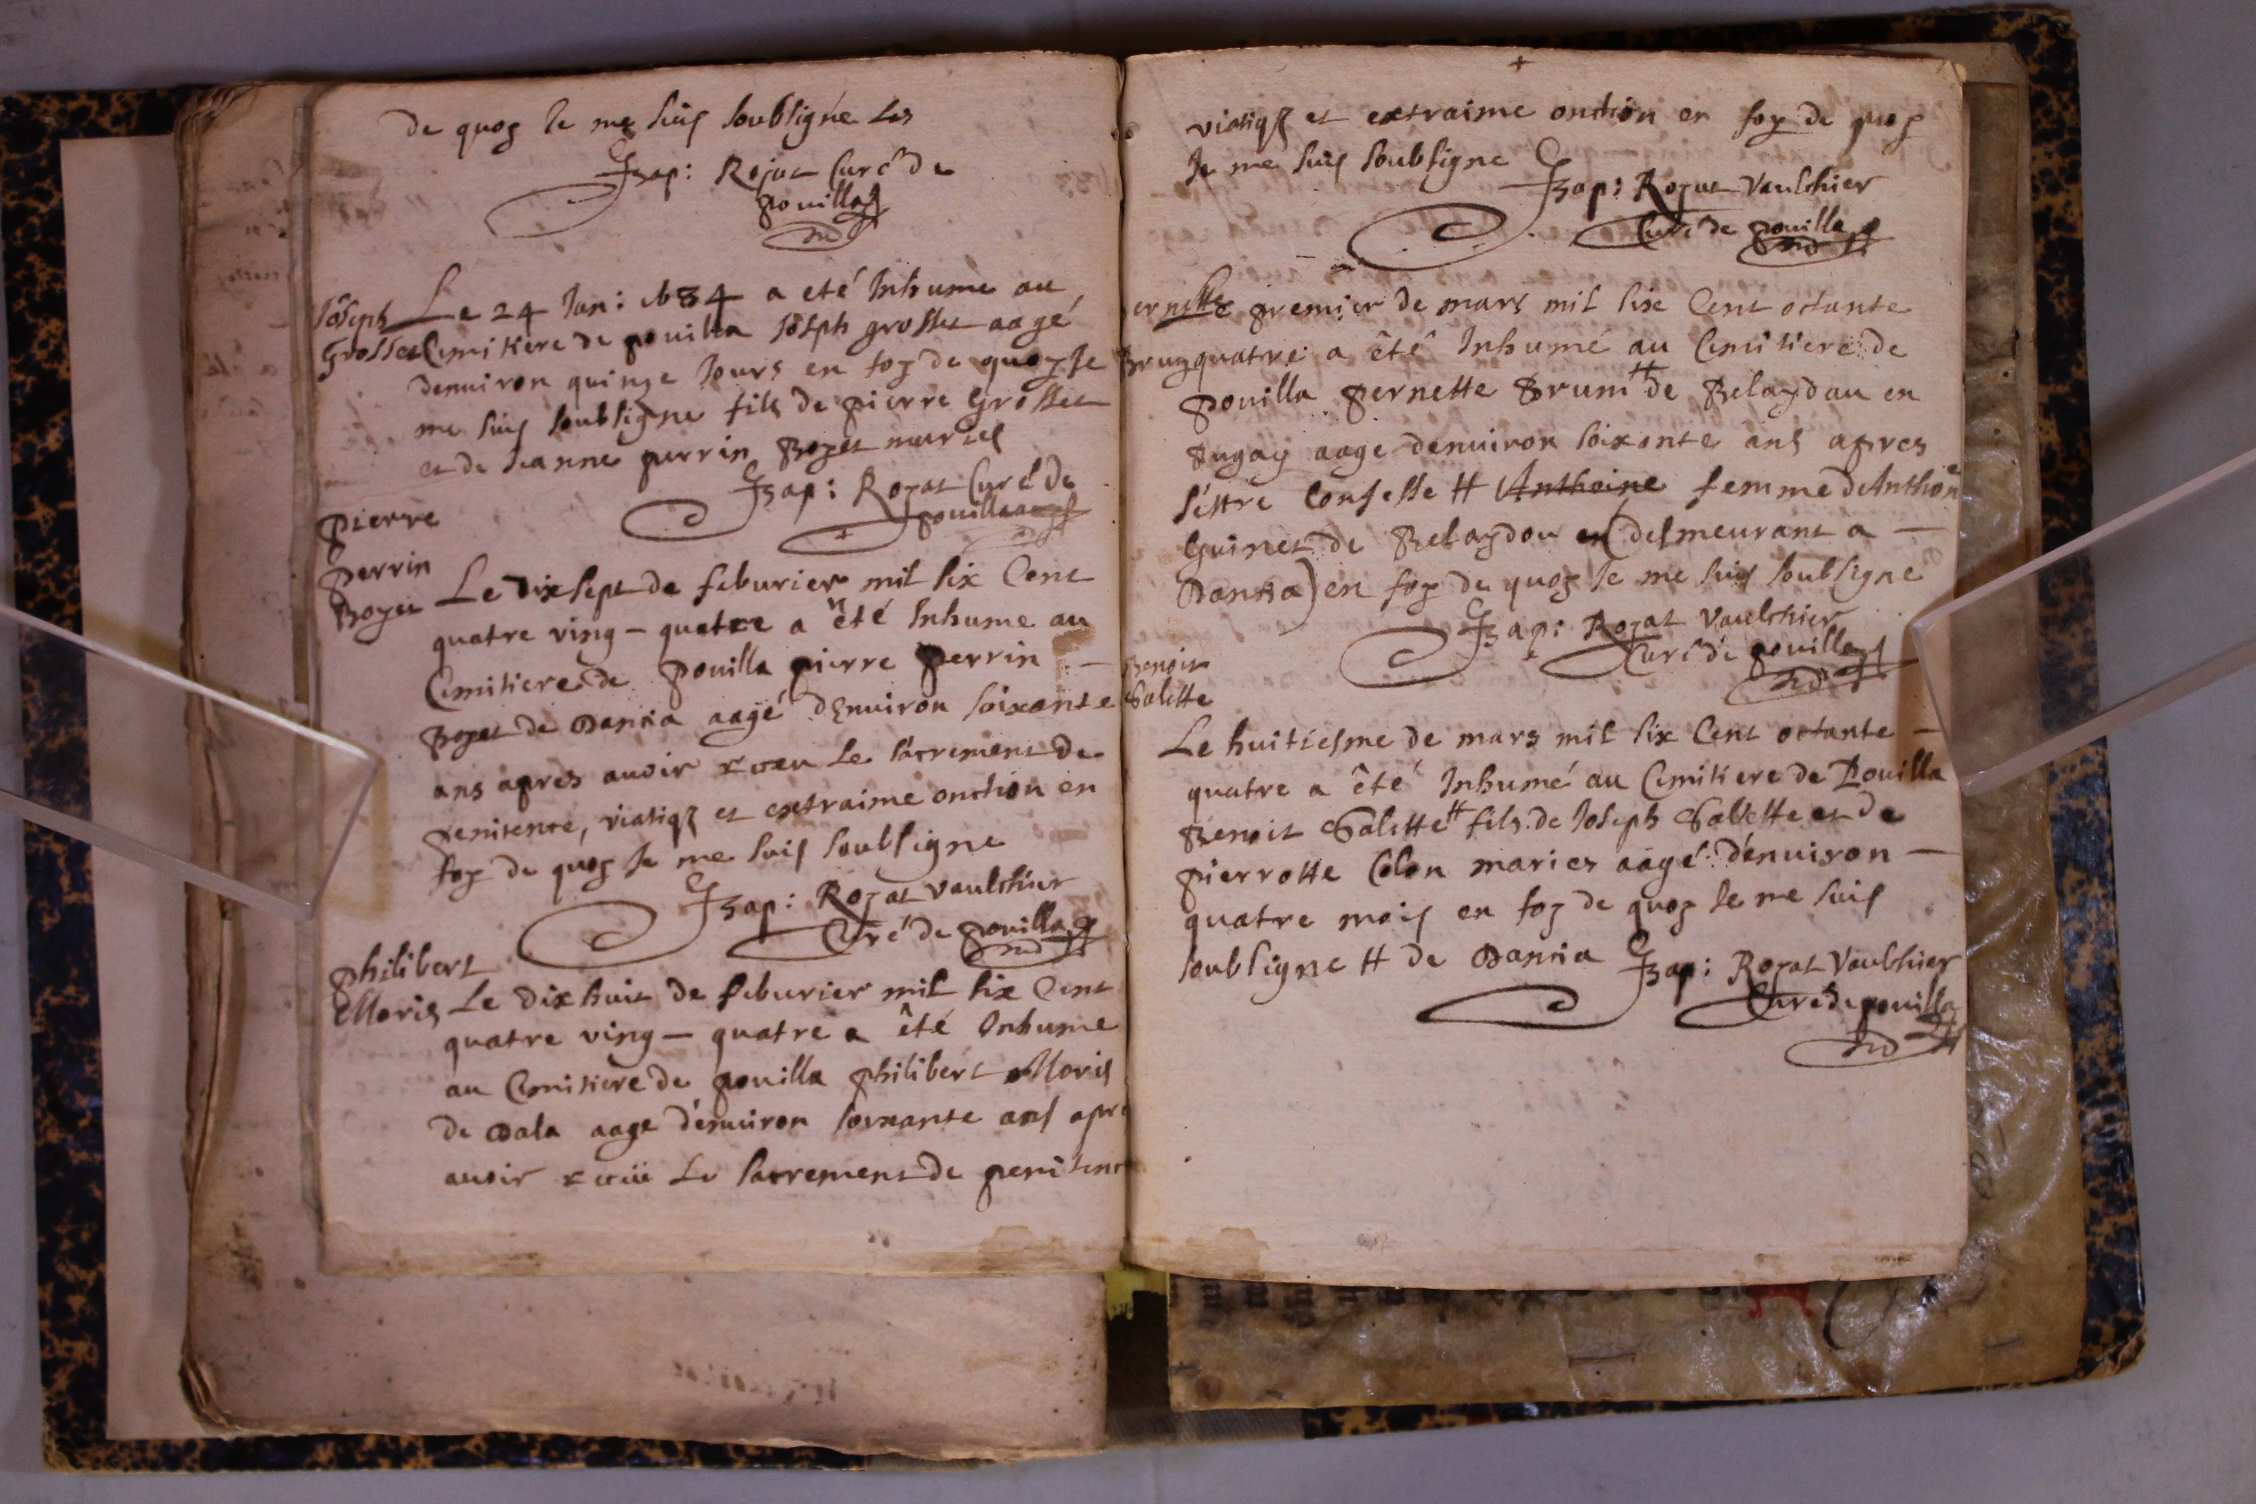 de quoy Je me suis soubsigne Les
Bap: Rojat Curé de
pouilla
Joseph
Grosset
Le 24 Jan: 1684 a eté Inhume au
Cimitiere de pouilla Joseph grosset aagé
denuiron quinze Jours en foy de quoy Je
me suis soubsigne fils de pierre Grosset
et de Jeanne perrin Boyet mariés
Bap: Rojat Curé de
pouilla
pierre
perrin
Boyet
Le Dix sept de feburier mil six Cent
quatre ving - quatre a été Inhume au
Cimitiere de pouilla pierre perrin -
Boyet de Dancia aagé d'Enuiron soixante
ans apres auoir receu le sacrement de
penitence, viatiq et extraime onction en
foy de quoy Je me suis soubsigne
Bap: Rojat Vaulchier
Curé de pouilla
philibert
Moris
Le Dix huit de feburier mil six Cent
quatre ving - quatre a êté Inhume
au Cimitiere de pouilla philibert Moris
de Dala aage d'enuiron soixante ans apre
auoir receü Le sacrement de penitenc
viatiq et extraime onction en foy de quoy
Je me suis soubsigne
Bap: Rojat Vaulchier
Curé de pouilla
ernette
Brun
premier de mars mil six Cent octante
quatre a êté Inhumé au Cimitiere de
pouilla pernette Brun # de Belaydou en
Bugay aage denuiron soixonte ans apres
s'estre Confesse # Anthoine femme d'Anthoin
Guinet de Belaydou en (desmeurant a -
Dancia) en foy de quoy Je me suis soubsigne
Bap: Rojat Vaulchier
Curé de pouilla
Benoit
Salette
Le huitiesme de mars mil six Cent octante -
quatre a êté Inhumé au Cimitiere de Pouilla
Benoit Salette # fils de Joseph Salette et de
pierrotte Colon maries aagé d'enuiron -
quatre mois en foy de quoy Je me suis
soubsigne # de Dancia
Bap: Rojat Vaulchier
Curé de pouilla